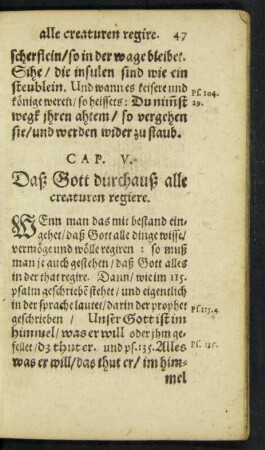 alle creaturen regire. 47
scherflein/so in der wage bleibet.
Sihe/ die insulen sind wie ein
steublein. Und wann es keisere und
könige weren/ so heissets: Du nim̃st Ps. 104.
wegk jhren ahtem/ so vergehen 29.
sie/und werden wider zu staub.
CAP. V.
Daß Gott durchauß alle
creaturen regiere.
WEnn man das mit bestand ein-
gehet/daß Gott alle dinge wisse/
vermöge und wölle regiren: so muß
man je auch gestehen/ daß Gott alles
in der that regire. Dann/ wie im 115.
psalm geschriebē stehet/ und eigentlich
in der sprache lautet/darin der prophet
geschrieben/ Unser̃ Gott ist im Ps. 115. 4.
himmel/was er will oder jhm ge-
fellet/ dz thut er. und ps. 135. Alles Ps. 135.
was er will/das thut er/ im him-
mel